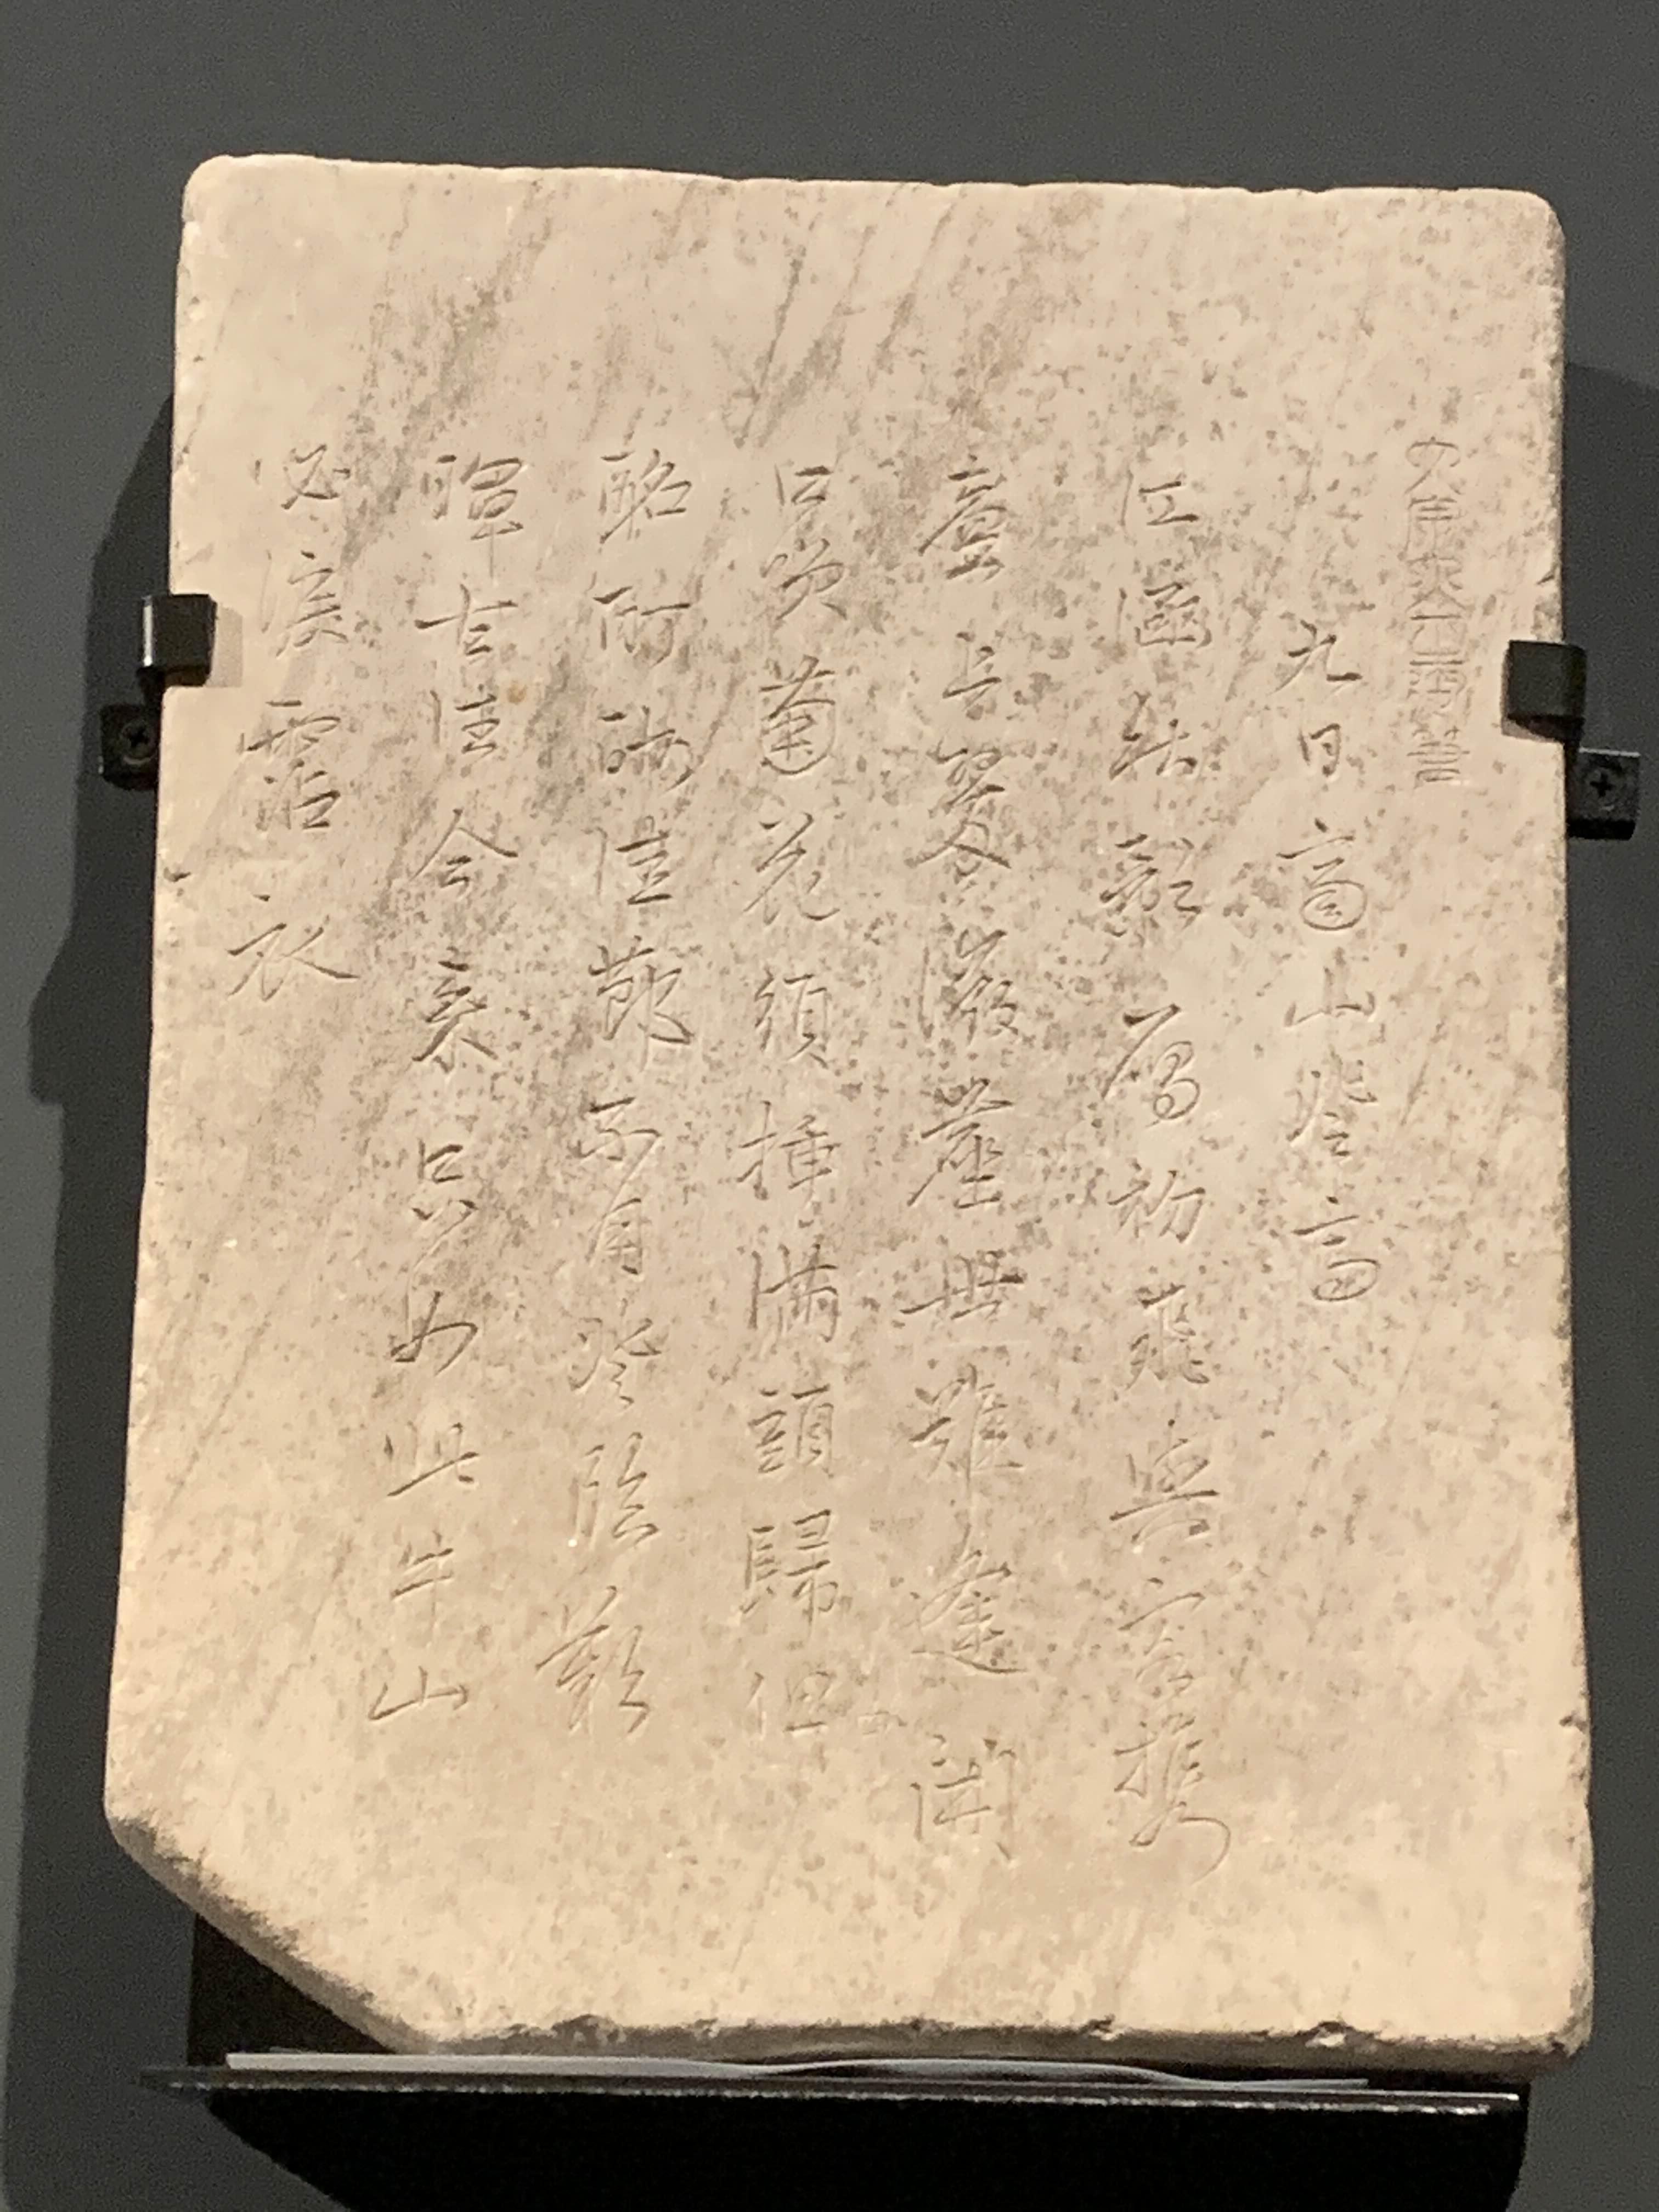 九日齊山登高
江涵秋影雁初飛與客攜
壺上翠微塵世難逢開
口笑菊花須插滿頭歸但
酩酊酬佳節不用登臨歎
暉古往今來只如此牛山
必淚霑衣